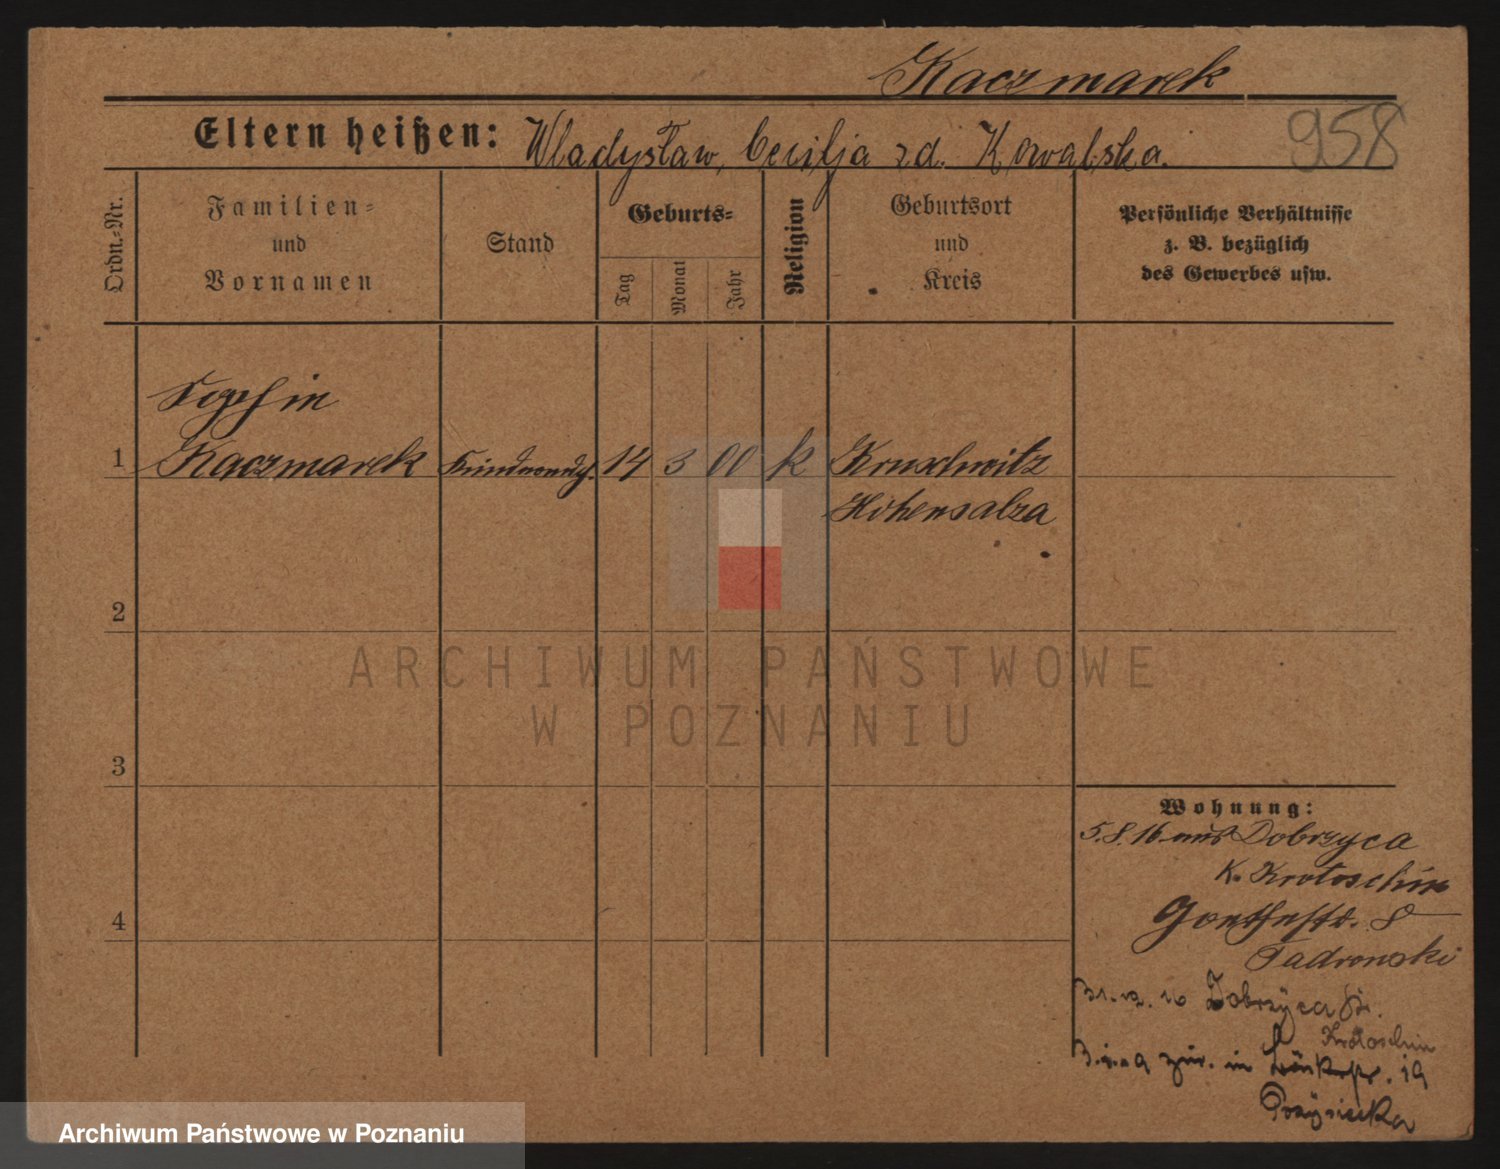 Kaczmarek
958
Eltern heißen: Wladysław, Cecilja zd. Kowalska.
Ordn.-Nr.
Familien-
und
Vornamen
Stand
Geburts-
Tag
Monat
Jahr
Religion
Geburtsort
und
Kreis
Persönliche Verhältnisse
z. B. bezüglich
des Gewerbes usw.
1 Kaczmarek 14 3 00 k Kruschwitz
Hohensalza
2
3
4
Wohnung:
5.8.16 aus Dobrzyca
K. Krotoschin
Goethestr. 8
31.12.16 Dobrzyca Kr.
Krotoschin
zur. in 19
ARCHIWUM PAŃSTWOWE
W POZNANIU
Archiwum Państwowe w Poznaniu